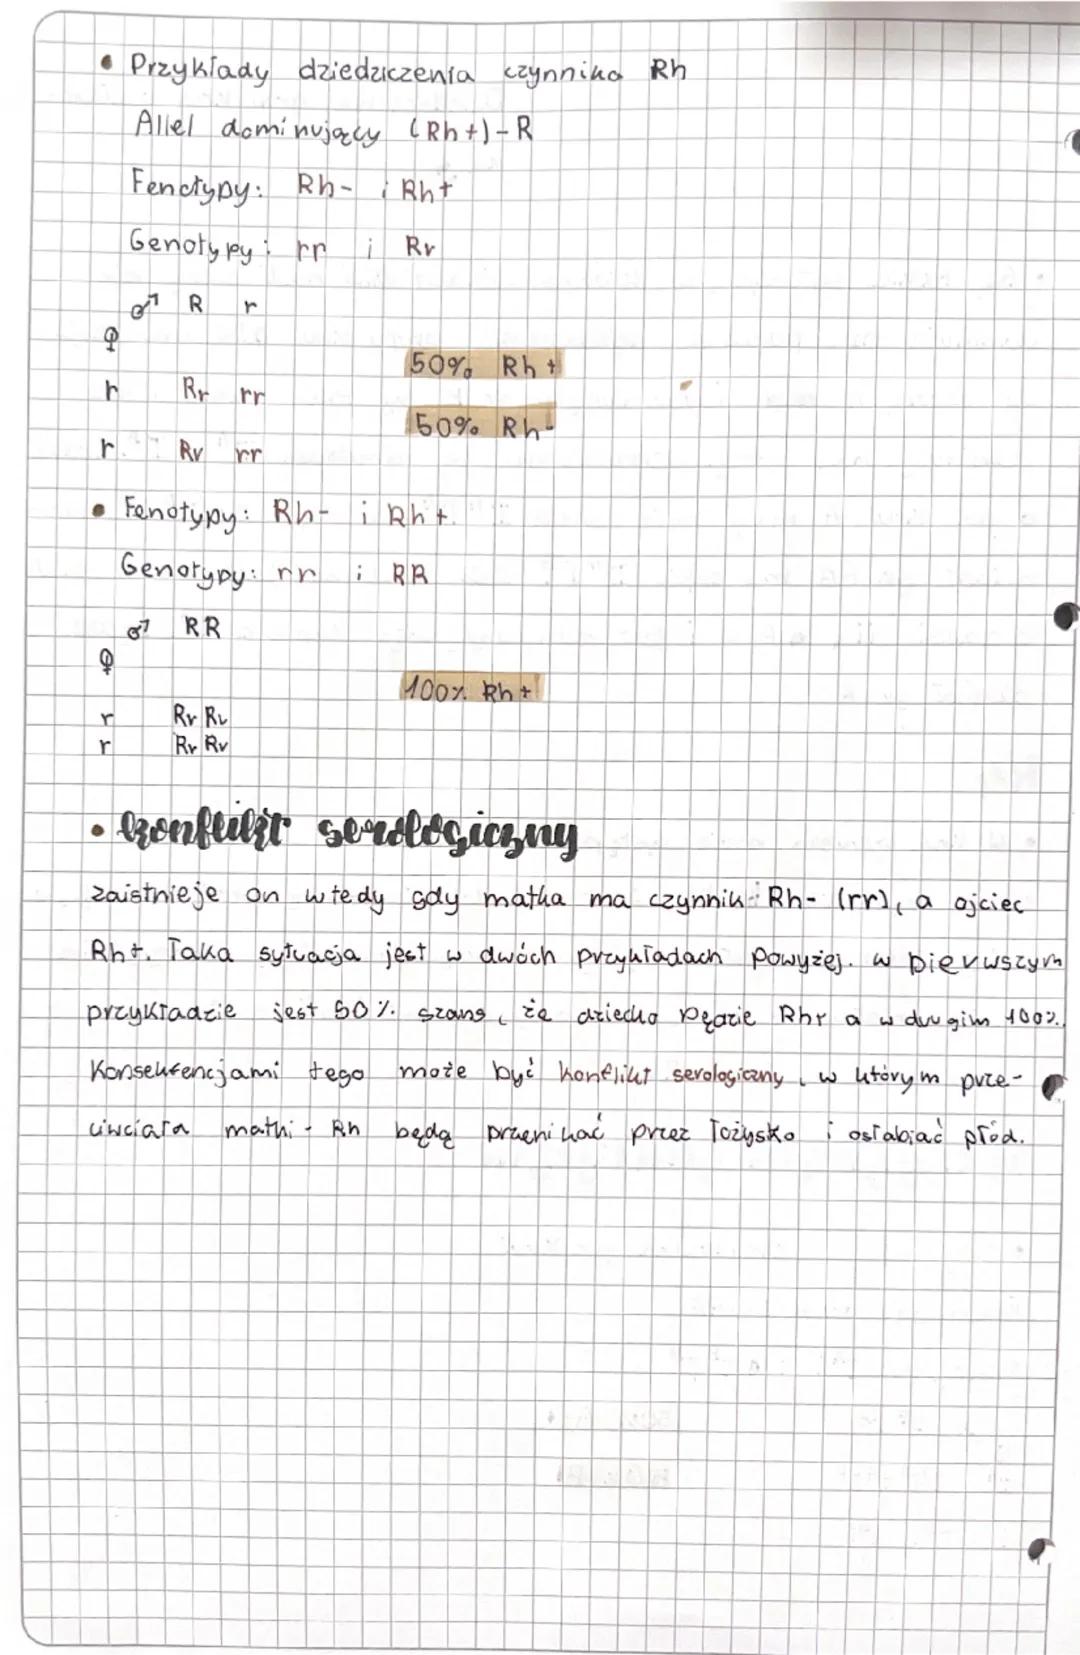 • Przykłady dziedziczenia czynnika Rh
Allel dominujący (Rh+) - R
Fenotypy: Rh- i Rh+
Genotypy: rr i Rr
♂ R r
♀
50% Rh+
r Rr rr
50% Rh-
r Rr rr
• Fenotypy: Rh- i Rh+
Genotypy: rr i RR
♂ RR
♀
100% Rh+
r Rr Rr
r Rr Rr
• konflikt serologiczny
zaistnieje on wtedy gdy matka ma czynnik Rh- (rr), a ojciec
Rh+. Taka sytuacja jest w dwóch przykładach powyżej. w pierwszym
przykładzie jest 50% szans, że dziecko będzie Rh+ a w drugim 100%.
Konsekfencjami tego może być konflikt serologiczny, w którym prze-
ciwciała matki - Rh będą przenikać przez łożysko i osłabiać płód.